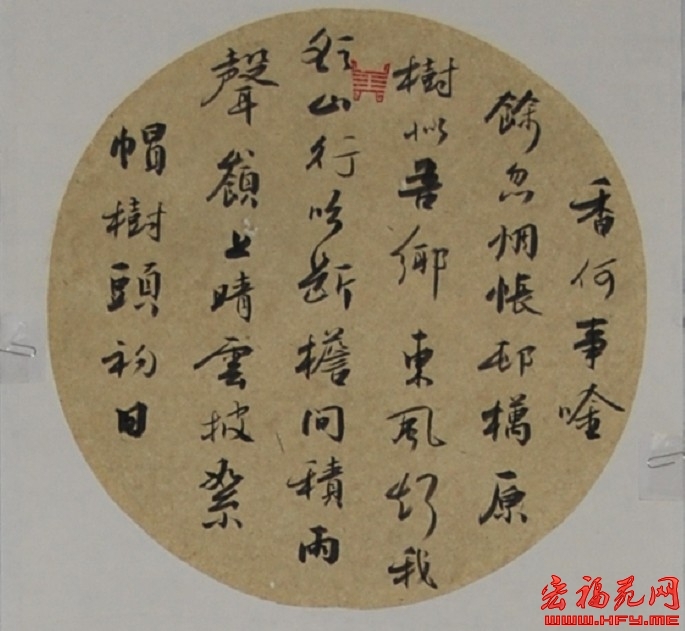 香何事唫
餘忽惆悵邨橋原
樹似吾鄉東風知我
欲山行吹斷檐間積雨
聲嶺上晴雲披絮
帽樹頭初日
宏福苑网
WWW.HFY.ME